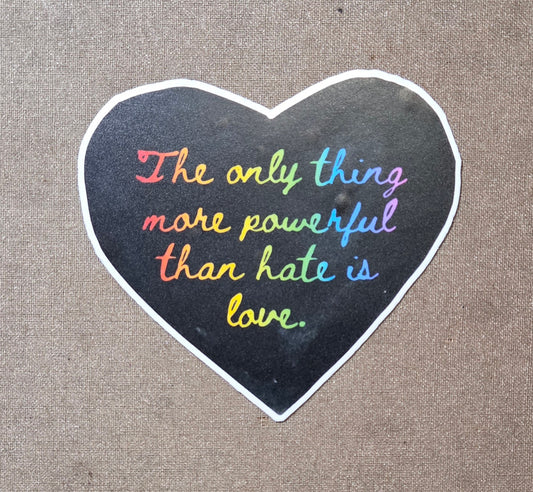 The only thing
more powerful
than hate is
love.